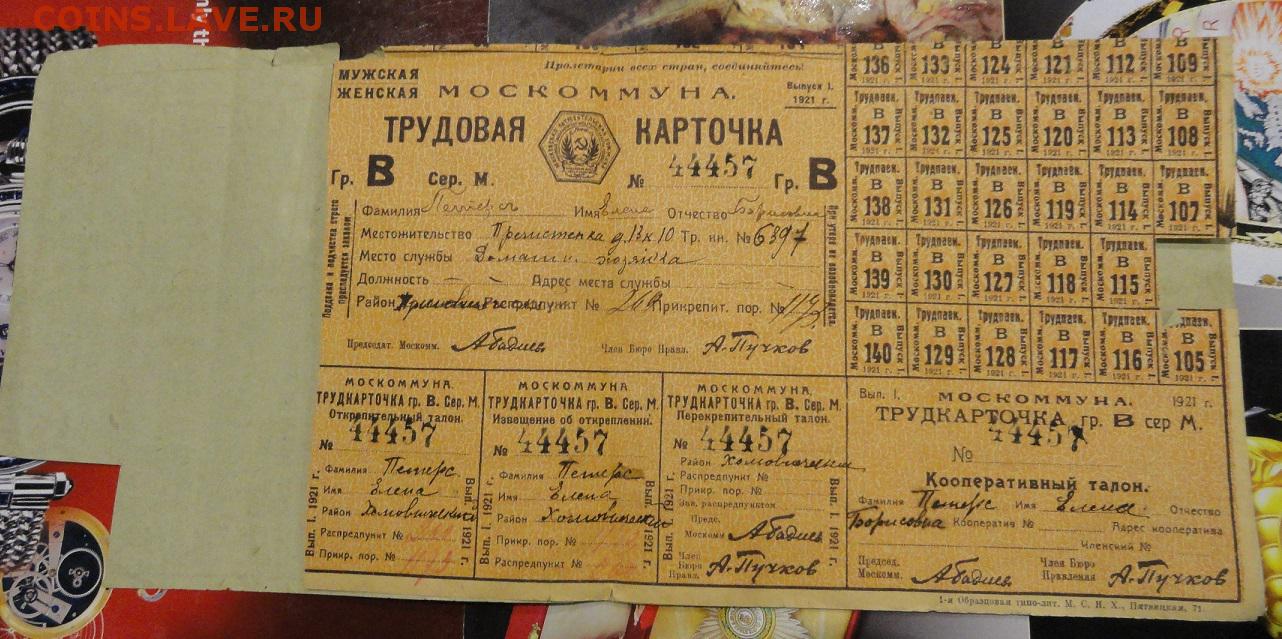 COINS.LAVE.RU
Пролетарии всех стран, соединяйтесь!
МУЖСКАЯ
ЖЕНСКАЯ
МОСКОММУНА.
Выпуск I.
1921 г.
ТРУДОВАЯ КАРТОЧКА
Гр. В Сер. М. № 44457 Гр. В
Подделка и подчистка строго преследуется законом
Фамилия Петерсъ Имя Елена Отчество Борисовна
Местожительство Пречистенка д. 13 к 10 Тр. кн. № 6397
Место службы Домашн. хозяйка
Должность Адрес места службы
Район Распредпункт № Прикрепит. пор. №
При утере не возобновляется
Председат. Москомм. А Бадаев Член Бюро Правл. А. Пучков
136 133 124 121 112 109
Трудпаек. В Москомм. Выпуск I. 1921 г.
137 132 125 120 113 108
138 131 126 119 114 107
139 130 127 118 115
140 129 128 117 116 105
МОСКОММУНА.
ТРУДКАРТОЧКА гр. В. Сер. М.
Открепительный талон.
№ 44457
Фамилия Петерс
Имя Елена
Район Хамовнический
Распредпункт №
Прикр. пор. №
Вып. I. 1921 г.
Вып. I. 1921 г.
МОСКОММУНА.
ТРУДКАРТОЧКА гр. В. Сер. М.
Извещение об откреплении.
№ 44457
Фамилия Петерс
Имя Елена
Район Хамовнический
Прикр. пор. №
Распредпункт №
Вып. I. 1921 г.
Вып. I. 1921 г.
МОСКОММУНА.
ТРУДКАРТОЧКА гр. В. Сер. М.
Перекрепительный талон.
№ 44457
Район Хамовнический
Распредпункт №
Прикр. пор. №
Зав. распредпунктом
Предс.
Москомм А Бадаев
Член
Бюро
Правл. А. Пучков
Вып. I. 1921 г.
Вып. I. 1921 г.
Вып. I. МОСКОММУНА. 1921 г.
ТРУДКАРТОЧКА гр. В сер М.
№ 44457
Кооперативный талон.
Фамилия Петерс Имя Елена Отчество
Борисовна Кооператив № Адрес кооператива
Членский №
Председ.
Москомм. А Бадаев
Член Бюро
Правления А. Пучков
1-я Образцовая типо-лит. М. С. Н. Х., Пятницкая, 71.